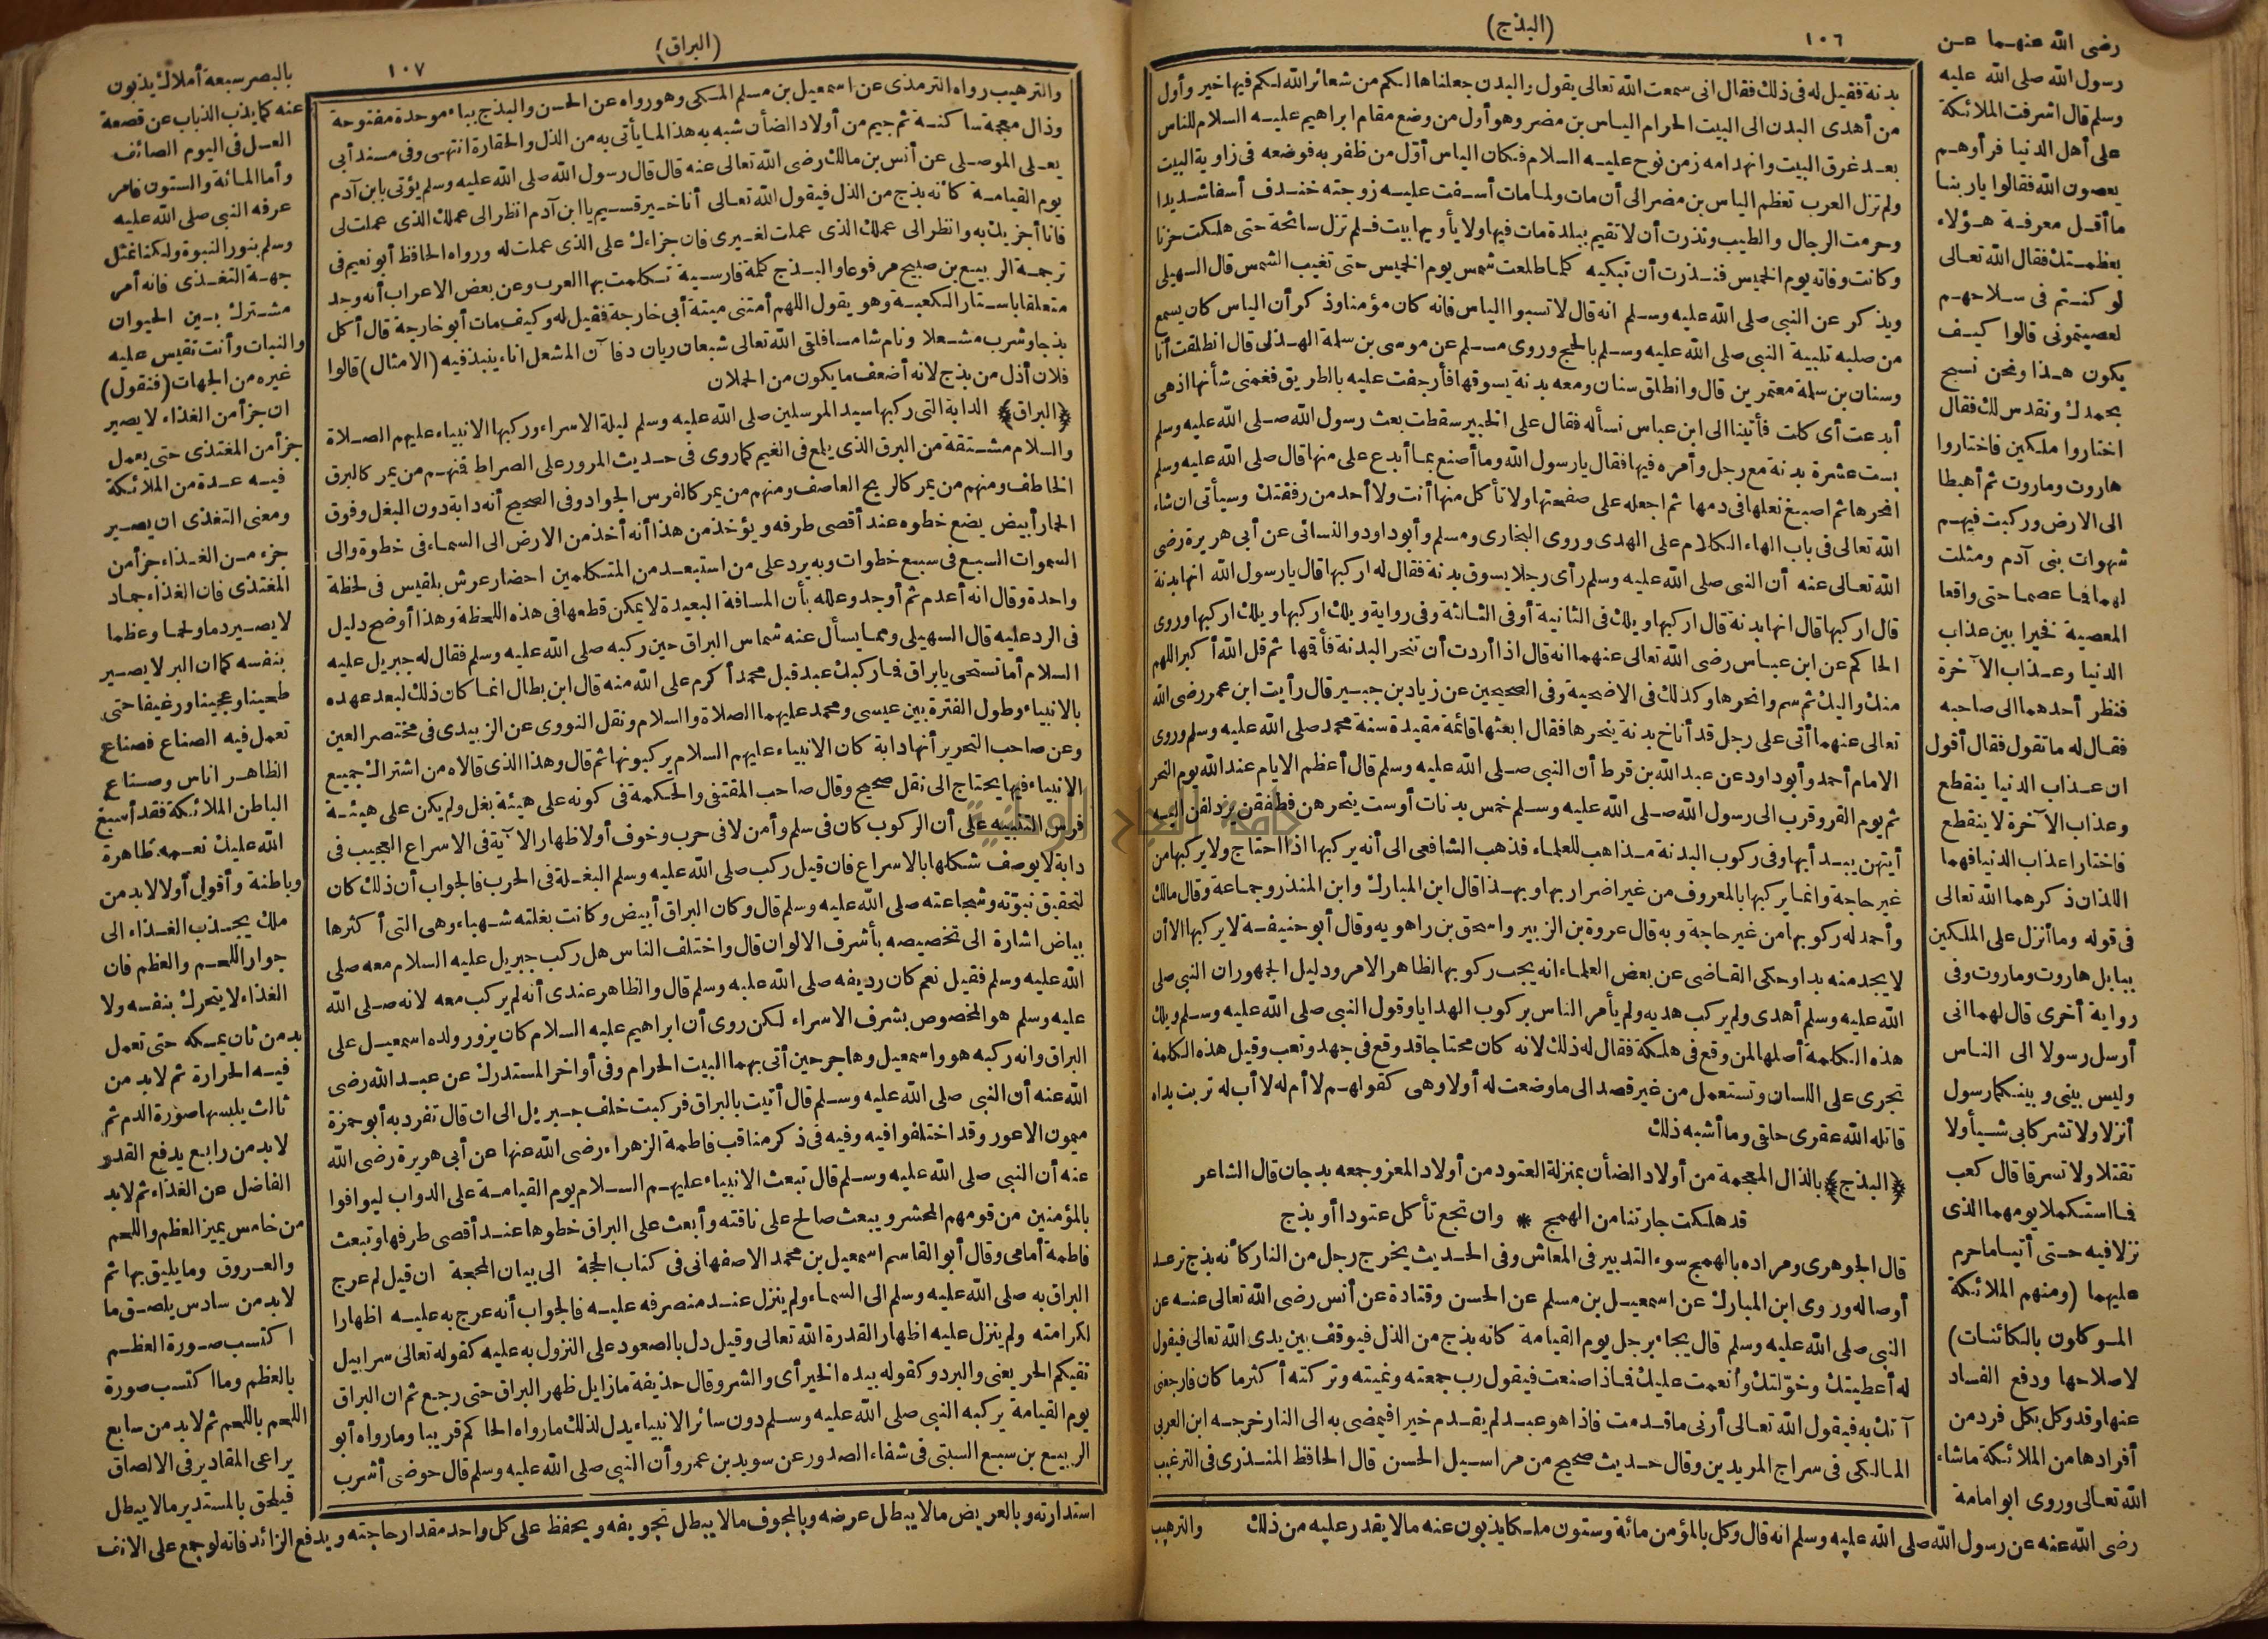 (البذج)
١٠٦
بدنة فقيل له فى ذلك فقال انى سمعت الله تعالى يقول والبدن جعلناها لكم من شعائر الله لكم فيها خير وأول
من أهدى البدن الى البيت الحرام الياس بن مضر وهو أول من وضع مقام ابراهيم عليه السلام للناس
بعد غرق البيت وانهدامه زمن نوح عليه السلام فكان الياس أول من ظفر به فوضعه فى زاوية البيت
ولم تزل العرب تعظم الياس بن مضر الى أن مات ولما مات أسفت عليه زوجته خندف أسفا شديدا
وحرمت الرجال والطيب ونذرت أن لا تقيم ببلدة مات فيها ولا يأويها بيت فلم تزل سائحة حتى هلكت حزنا
وكانت وفاته يوم الخميس فنذرت أن تبكيه كلما طلعت شمس يوم الخميس حتى تغيب الشمس قال السهيلى
ويذكر عن النبى صلى الله عليه وسلم انه قال لا تسبوا الياس فانه كان مؤمنا وذكر أن الياس كان يسمع
من صلبه تلبية النبى صلى الله عليه وسلم بالحج وروى مسلم عن موسى بن سلمة الهذلى قال انطلقت أنا
وسنان بن سلمة معتمرين قال وانطلق سنان ومعه بدنة يسوقها فأرجفت عليه بالطريق فغمنى شأنها اذ هى
أبدعت أى كلت فأتينا الى ابن عباس نسأله فقال على الخبير سقطت بعث رسول الله صلى الله عليه وسلم
بست عشرة بدنة مع رجل وأمره فيها فقال يا رسول الله وما أصنع بما أبدع على منها قال صلى الله عليه وسلم
انحرها ثم اصبغ نعلها فى دمها ثم اجعله على صفحتها ولا تأكل منها أنت ولا أحد من رفقتك وسيأتى ان شاء
الله تعالى فى باب الهاء الكلام على الهدى وروى البخارى ومسلم وأبو داود والنسائى عن أبى هريرة رضى
الله تعالى عنه أن النبى صلى الله عليه وسلم رأى رجلا يسوق بدنة فقال له اركبها قال يا رسول الله انها بدنة
قال اركبها قال انها بدنة قال اركبها ويلك فى الثانية أو فى الثالثة وفى رواية ويلك اركبها ويلك اركبها وروى
الحاكم عن ابن عباس رضى الله تعالى عنهما انه قال اذا أردت أن تنحر البدنة فأقمها ثم قل الله أكبر اللهم
منك واليك ثم سم وانحرها وكذلك فى الاضحية وفى الصحيحين عن زياد بن جبير قال رأيت ابن عمر رضى الله
تعالى عنهما أتى على رجل قد أناخ بدنة ينحرها فقال ابعثها قائمة مقيدة سنة محمد صلى الله عليه وسلم وروى
الامام أحمد وأبو داود عن عبد الله بن قرط أن النبى صلى الله عليه وسلم قال أعظم الايام عند الله يوم النحر
ثم يوم القر وقرب الى رسول الله صلى الله عليه وسلم خمس بدنات أو ست ينحرهن فطفقن يزدلفن اليه
أيتهن يبدأ بها وفى ركوب البدنة مذاهب للعلماء فذهب الشافعى الى أنه يركبها اذا احتاج ولا يركبها من
غير حاجة وانما يركبها بالمعروف من غير اضرار بها وبهذا قال ابن المبارك وابن المنذر وجماعة وقال مالك
وأحمد له ركوبها من غير حاجة وبه قال عروة بن الزبير واسحق بن راهويه وقال أبو حنيفة لا يركبها الا أن
لا يجد منه بدا وحكى القاضى عن بعض العلماء انه يجب ركوبها لظاهر الامر ودليل الجمهور ان النبى صلى
الله عليه وسلم أهدى ولم يركب هديه ولم يأمر الناس بركوب الهدايا وقول النبى صلى الله عليه وسلم ويلك
هذه الكلمة أصلها لمن وقع فى هلكة فقال له ذلك لانه كان محتاجا قد وقع فى جهد وتعب وقيل هذه الكلمة
تجرى على اللسان وتستعمل من غير قصد الى ما وضعت له أولا وهى كقولهم لا أم له لا أب له تربت يداه
قاتله الله عقرى حلقى وما أشبه ذلك
﴿البذج﴾ بالذال المعجمة من أولاد الضأن بمنزلة العتود من أولاد المعز وجمعه بذجان قال الشاعر
قد هلكت جارتنا من الهمج * وان تجع تأكل عتودا أو بذج
قال الجوهرى ومراده بالهمج سوء التدبير فى المعاش وفى الحديث يخرج رجل من النار كأنه بذج ترعد
أوصاله وروى ابن المبارك عن اسمعيل بن مسلم عن الحسن وقتادة عن أنس رضى الله تعالى عنه عن
النبى صلى الله عليه وسلم قال يجاء برجل يوم القيامة كأنه بذج من الذل فيوقف بين يدى الله تعالى فيقول
له أعطيتك وخولتك وأنعمت عليك فماذا صنعت فيقول رب جمعته ونميته وتركته أكثر ما كان فارجعنى
آتك به فيقول الله تعالى أرنى ما قدمت فاذا هو عبد لم يقدم خيرا فيمضى به الى النار خرجه ابن العربى
المالكى فى سراج المريدين وقال حديث صحيح من مراسيل الحسن قال الحافظ المنذرى فى الترغيب
والترهيب
رضى الله عنهما عن
رسول الله صلى الله عليه
وسلم قال اشرفت الملائكة
على أهل الدنيا فرأوهم
يعصون الله فقالوا يا ربنا
ما أقل معرفة هؤلاء
بعظمتك فقال الله تعالى
لو كنتم فى سلاحهم
لعصيتمونى قالوا كيف
يكون هذا ونحن نسبح
بحمدك ونقدس لك فقال
اختاروا ملكين فاختاروا
هاروت وماروت ثم أهبطا
الى الارض وركبت فيهم
شهوات بنى آدم ومثلت
لهما فما عصما حتى واقعا
المعصية فخيرا بين عذاب
الدنيا وعذاب الآخرة
فنظر أحدهما الى صاحبه
فقال له ما تقول فقال أقول
ان عذاب الدنيا ينقطع
وعذاب الآخرة لا ينقطع
فاختارا عذاب الدنيا فهما
اللذان ذكرهما الله تعالى
فى قوله وما أنزل على الملكين
ببابل هاروت وماروت وفى
رواية أخرى قال لهما انى
أرسل رسولا الى الناس
وليس بينى وبينكما رسول
أنزلا ولا تشركا بى شيأ ولا
تقتلا ولا تسرقا قال كعب
فما استكملا يومهما الذى
نزلا فيه حتى أتيا ما حرم
عليهما (ومنهم الملائكة
الموكلون بالكائنات)
لاصلاحها ودفع الفساد
عنها وقد وكل بكل فرد من
أفرادها من الملائكة ما شاء
الله تعالى وروى ابو امامة
رضى الله عنه عن رسول الله صلى الله عليه وسلم انه قال وكل بالمؤمن مائة وستون ملكا يذبون عنه ما لا يقدر عليه من ذلك
(البراق)
١٠٧
والترهيب رواه الترمذى عن اسمعيل بن مسلم المكى وهو رواه عن الحسن والبذج بباء موحدة مفتوحة
وذال معجمة ساكنة ثم جيم من أولاد الضأن شبه به هذا لما يأتى به من الذل والحقارة انتهى وفى مسند أبى
يعلى الموصلى عن أنس بن مالك رضى الله تعالى عنه قال قال رسول الله صلى الله عليه وسلم يؤتى بابن آدم
يوم القيامة كأنه بذج من الذل فيقول الله تعالى أنا خير قسيم يا ابن آدم انظر الى عملك الذى عملت لى
فانا أجزيك به وانظر الى عملك الذى عملت لغيرى فان جزاءك على الذى عملت له ورواه الحافظ أبو نعيم فى
ترجمة الربيع بن صبيح مرفوعا والبذج كلمة فارسية تكلمت بها العرب وعن بعض الاعراب أنه وجد
متعلقا باستار الكعبة وهو يقول اللهم أمتنى ميتة أبى خارجة فقيل له وكيف مات أبو خارجة قال أكل
بذجا وشرب مشعلا ونام شامسا فلقى الله تعالى شبعان ريان دفآن المشعل اناء ينبذ فيه (الامثال) قالوا
فلان أذل من بذج لانه أضعف ما يكون من الحملان
﴿البراق﴾ الدابة التى ركبها سيد المرسلين صلى الله عليه وسلم ليلة الاسراء وركبها الانبياء عليهم الصلاة
والسلام مشتقة من البرق الذى يلمع فى الغيم كما روى فى حديث المرور على الصراط فمنهم من يمر كالبرق
الخاطف ومنهم من يمر كالريح العاصف ومنهم من يمر كالفرس الجواد وفى الصحيح أنه دابة دون البغل وفوق
الحمار أبيض يضع خطوه عند أقصى طرفه ويؤخذ من هذا أنه أخذ من الارض الى السماء فى خطوة والى
السموات السبع فى سبع خطوات وبه يرد على من استبعد من المتكلمين احضار عرش بلقيس فى لحظة
واحدة وقال انه أعدم ثم أوجد وعلله بأن المسافة البعيدة لا يمكن قطعها فى هذه اللحظة وهذا أوضح دليل
فى الرد عليه قال السهيلى ومما يسأل عنه شماس البراق حين ركبه صلى الله عليه وسلم فقال له جبريل عليه
السلام أما تستحى يا براق فما ركبك عبد قبل محمد أكرم على الله منه قال ابن بطال انما كان ذلك لبعد عهده
بالانبياء وطول الفترة بين عيسى ومحمد عليهما الصلاة والسلام ونقل النووى عن الزبيدى فى مختصر العين
وعن صاحب التحرير أنها دابة كان الانبياء عليهم السلام يركبونها ثم قال وهذا الذى قالاه من اشتراك جميع
الانبياء فيها يحتاج الى نقل صحيح وقال صاحب المقتفى والحكمة فى كونه على هيئة بغل ولم يكن على هيئة
فرس التنبيه على أن الركوب كان فى سلم وأمن لا فى حرب وخوف أو لاظهار الآية فى الاسراع العجيب فى
دابة لا يوصف شكلها بالاسراع فان قيل ركب صلى الله عليه وسلم البغلة فى الحرب فالجواب أن ذلك كان
لتحقيق نبوته وشجاعته صلى الله عليه وسلم قال وكان البراق أبيض وكانت بغلته شهباء وهى التى أكثرها
بياض اشارة الى تخصيصه بأشرف الالوان قال واختلف الناس هل ركب جبريل عليه السلام معه صلى
الله عليه وسلم فقيل نعم كان رديفه صلى الله عليه وسلم قال والظاهر عندى أنه لم يركب معه لانه صلى الله
عليه وسلم هو المخصوص بشرف الاسراء لكن روى أن ابراهيم عليه السلام كان يزور ولده اسمعيل على
البراق وانه ركبه هو واسمعيل وهاجر حين أتى بهما البيت الحرام وفى أواخر المستدرك عن عبد الله رضى
الله عنه أن النبى صلى الله عليه وسلم قال أتيت بالبراق فركبت خلف جبريل الى ان قال تفرد به أبو حمزة
ميمون الاعور وقد اختلفوا فيه وفيه فى ذكر مناقب فاطمة الزهراء رضى الله عنها عن أبى هريرة رضى الله
عنه أن النبى صلى الله عليه وسلم قال تبعث الانبياء عليهم السلام يوم القيامة على الدواب ليوافوا
بالمؤمنين من قومهم المحشر ويبعث صالح على ناقته وأبعث على البراق خطوها عند أقصى طرفها وتبعث
فاطمة أمامى وقال أبو القاسم اسمعيل بن محمد الاصفهانى فى كتاب الحجة الى بيان المحجة ان قيل لم عرج
البراق به صلى الله عليه وسلم الى السماء ولم ينزل عند منصرفه عليه فالجواب أنه عرج به عليه اظهارا
لكرامته ولم ينزل عليه اظهارا لقدرة الله تعالى وقيل دل بالصعود على النزول به عليه كقوله تعالى سرابيل
تقيكم الحر يعنى والبرد وكقوله بيده الخير أى والشر وقال حذيفة ما زايل ظهر البراق حتى رجع ثم ان البراق
يوم القيامة يركبه النبى صلى الله عليه وسلم دون سائر الانبياء يدل لذلك ما رواه الحاكم قريبا وما رواه أبو
الربيع بن سبع السبتى فى شفاء الصدور عن سويد بن عمرو أن النبى صلى الله عليه وسلم قال حوضى أشرب
بالبصر سبعة أملاك يذبون
عنه كما يذب الذباب عن قصعة
العسل فى اليوم الصائف
وأما المائة والستون فامر
عرفه النبى صلى الله عليه
وسلم بنور النبوة ولكنا نمثل
جهة التغذى فانه أمر
مشترك بين الحيوان
والنبات وأنت تقيس عليه
غيره من الجهات (فنقول)
ان جزأ من الغذاء لا يصير
جزأ من المغتذى حتى يعمل
فيه عدة من الملائكة
ومعنى التغذى ان يصير
جزء من الغذاء جزأ من
المغتذى فان الغذاء جماد
لا يصير دما ولحما وعظما
بنفسه كما ان البر لا يصير
طحينا وعجينا ورغيفا حتى
تعمل فيه الصناع فصناع
الظاهر اناس وصناع
الباطن الملائكة فقد أسبغ
الله عليك نعمه ظاهرة
وباطنة وأقول أولا لا بد من
ملك يجذب الغذاء الى
جوار اللحم والعظم فان
الغذاء لا يتحرك بنفسه ولا
بد من ثان يمسكه حتى تعمل
فيه الحرارة ثم لا بد من
ثالث يلبسها صورة الدم ثم
لا بد من رابع يدفع القدر
الفاضل عن الغذاء ثم لا بد
من خامس يميز العظم واللحم
والعروق وما يليق بها ثم
لا بد من سادس يلصق ما
اكتسب صورة العظم
بالعظم وما اكتسب صورة
اللحم باللحم ثم لا بد من سابع
يراعى المقادير فى الالصاق
فيلحق بالمستدير ما لا يبطل
استدارته وبالعريض ما لا يبطل عرضه وبالمجوف ما لا يبطل تجويفه ويحفظ على كل واحد مقدار حاجته ويدفع الزائد فانه لو جمع على الانف